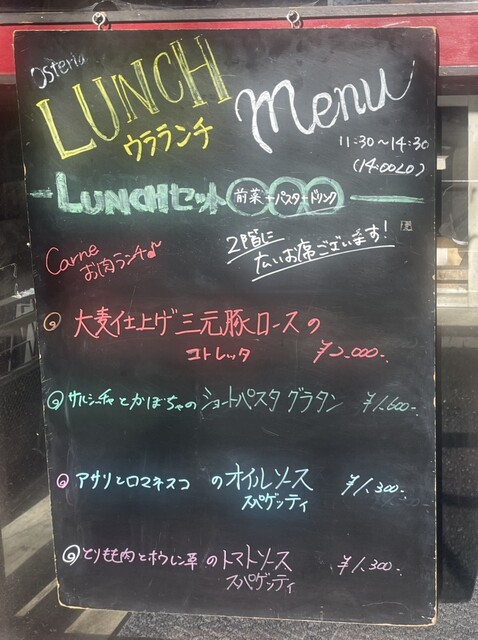 Osteria
LUNCH Menu
ウラランチ
11:30～14:30
(14:00LO)
LUNCHセット 前菜+パスタ+ドリンク
2階に
広いお席ございます!
Carne
お肉ランチ♪
大麦仕上げ三元豚ロースの
コトレッタ ¥2,000-
サルシーチャとかぼちゃのショートパスタグラタン ¥1,600-
アサリとロマネスコのオイルソース
スパゲッティ ¥1,300-
とりもも肉とホウレン草のトマトソース
スパゲッティ ¥1,300-